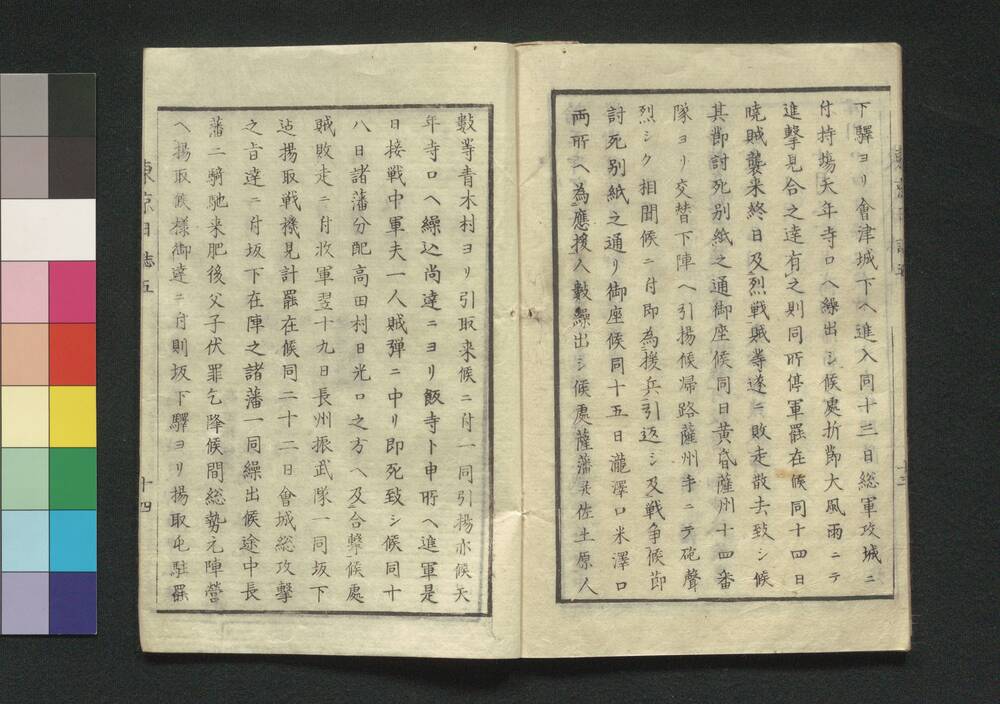 下驛ヨリ會津城下ヘ進入同十三日総軍攻城ニ
付持塲天年寺口ヘ繰出シ候處折節大風雨ニテ
進擊見合之達有之則同所停軍罷在候同十四日
曉賊襲来終日及烈戦賊等遂ニ敗走散去致シ候
其節討死别紙之通御座候同日黄昏薩州十四番
隊ヨリ交替下陣ヘ引揚候帰路薩州手ニテ砲聲
烈シク相聞候ニ付即為援兵引返シ及戦争候節
討死别紙之通リ御座候同十五日瀧澤口米澤口
両所ヘ為應援人數繰出シ候處薩藩并佐土原人
數等青木村ヨリ引取来候ニ付一同引揚亦候天
年寺口ヘ繰込尚達ニヨリ飯寺ト申所ヘ進軍是
日接戦中軍夫一人賊弾ニ中リ即死致シ候同十
八日諸藩分配高田村日光口之方ヘ及合擊候處
賊敗走ニ付收軍翌十九日長州振武隊一同坂下
迠揚取戦機見計罷在候同二十二日會城総攻擊
之旨達ニ付坂下在陣之諸藩一同繰出候途中長
藩二騎馳来肥後父子伏罪乞降候間総勢元陣營
ヘ揚取候様御達ニ付則坂下驛ヨリ揚取屯駐罷
東京日誌五
十四